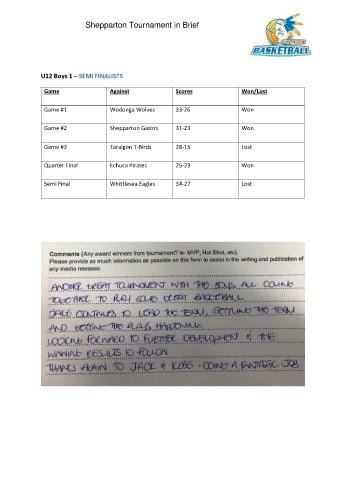 Shepparton Tournament in Brief
BASKETBALL
U12 Boys 1 – SEMI FINALISTS
Game Against Scores Won/Lost
Game #1 Wodonga Wolves 33-26 Won
Game #2 Shepparton Gators 31-23 Won
Game #3 Taralgon T-Birds 28-15 Lost
Quarter Final Echuca Pirates 25-23 Won
Semi Final Whittlesea Eagles 34-27 Lost
Comments (Any award winners from tournament? ie- MVP, Hot Shot, etc).
Please provide as much information as possible on this form to assist in the writing and publication of
any media releases.
ANOTHER GREAT TOURNAMENT WITH THE BOYS ALL COMING
TOGETHER TO PLAY SOME GREAT BASKETBALL
JAKE CONTINUES TO LEAD THE TEAM, SETTLING THE TEAM
AND GETTING THE PLAYS HAPPENING
LOOKING FORWARD TO FURTHER DEVELOPMENT & THE
WINNING RESULTS TO FOLLOW
THANKS AGAIN TO JACK & KOBE - DOING A FANTASTIC JOB